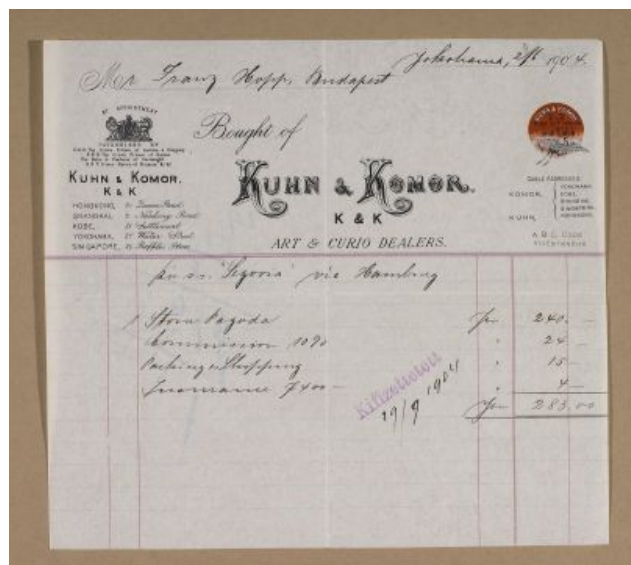 Yokohama, 2/6 1904.
Mr Franz Hopp, Budapest
BY APPOINTMENT
Bought of
KUHN & KOMOR
KUHN & KOMOR.
K & K
HONGKONG, 21 Queens Road
SHANGHAI, 2 Nanking Road
KOBE, 81 Settlement
YOKOHAMA, 37 Water Street
SINGAPORE, Raffles Place
KUHN & KOMOR.
K & K
ART & CURIO DEALERS.
CABLE ADDRESSES:
KOMOR,
YOKOHAMA,
KOBE,
SHANGHAI,
SINGAPORE,
KUHN,
HONGKONG,
A.B.C. CODE
per s.s. "Segovia" via Hamburg
1 Stone Pagoda Yen 240.—
Commission 10% " 24 —
Packing & Shipping " 15 —
Insurance Y 400 — " 4 —
Yen 283.00
Kifizettetett
19/9 1904